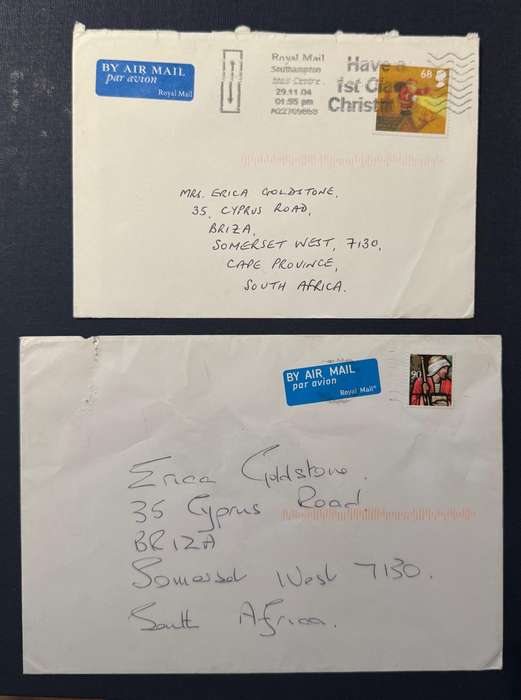 BY AIR MAIL
par avion
Royal Mail
Royal Mail
Southampton
Mail Centre
29.11.04
01:55 pm
Have a
1st Class
Christm
68
MRS. ERICA GOLDSTONE,
35, CYPRUS ROAD,
BRIZA,
SOMERSET WEST, 7130,
CAPE PROVINCE,
SOUTH AFRICA.
BY AIR MAIL
par avion
Royal Mail
90
Erica Goldstone.
35 Cyprus Road
BRIZA
Somerset West 7130.
South Africa.